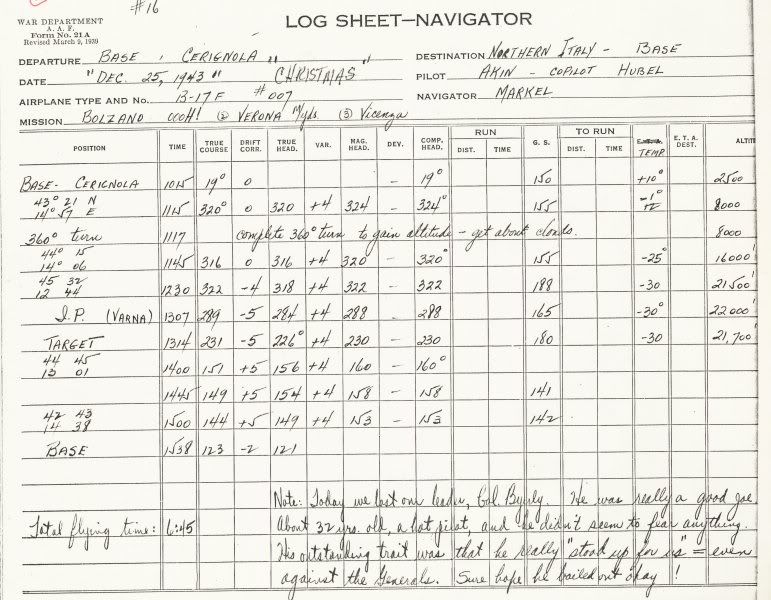 #16
WAR DEPARTMENT
A. A. F.
Form No. 21A
Revised March 9, 1939
LOG SHEET—NAVIGATOR
DEPARTURE BASE, CERIGNOLA DESTINATION NORTHERN ITALY - BASE
DATE "DEC. 25, 1943" "CHRISTMAS" PILOT AKIN - COPILOT HUBEL
AIRPLANE TYPE AND No. B-17F #007 NAVIGATOR MARKEL
MISSION BOLZANO OOH! (2) VERONA M/yds. (3) Vicenza
POSITION TIME TRUE COURSE DRIFT CORR. TRUE HEAD. VAR. MAG. HEAD. DEV. COMP. HEAD. RUN DIST. TIME G. S. TO RUN DIST. TIME TEMP E. T. A. DEST. ALTIT
BASE - CERIGNOLA 1015 19° 0 - 19° 150 +10° 2500
43° 21 N
14° 57 E 1115 320° 0 320 +4 324 - 324° 155 -1° 8000
360° turn 1117 complete 360° turn to gain altitude - get about clouds. 8000
44° 15
14° 06 1145 316 0 316 +4 320° - 320° 155 -25° 16000'
45 32
12 44 1230 322 -4 318 +4 322 - 322 188 -30 21500'
I.P. (VARNA) 1307 289 -5 284 +4 288 - 288 165 -30° 22000'
TARGET 1314 231 -5 226° +4 230 - 230 180 -30 21,700'
44 45
13 01 1400 151 +5 156 +4 160 - 160°
1445 149 +5 154 +4 158 - 158 141
42 43
14 38 1500 144 +5 149 +4 153 - 153 142
BASE 1538 123 -2 121
Note: Today we lost our leader, Col. Byerly. He was really a good joe.
Total flying time: 6:45 About 32 yrs. old, a hot pilot, and he didn't seem to fear anything.
His outstanding trait was that he really "stood up for us" = even
against the Generals. Sure hope he bailed out okay!